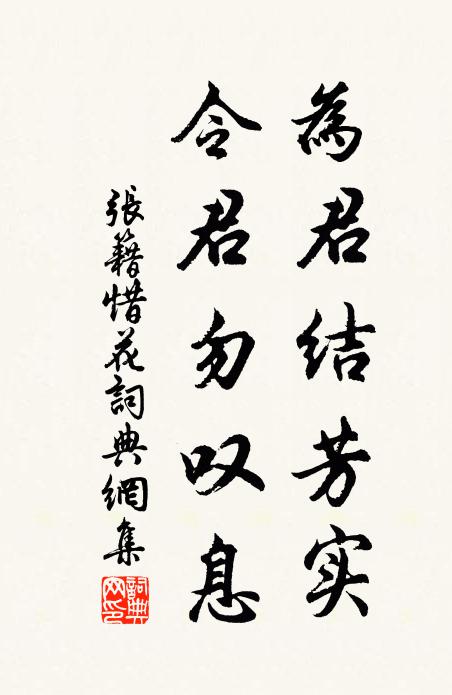 為君结芳实
令君勿叹息
張籍惜花詞典網集
詞典
网印